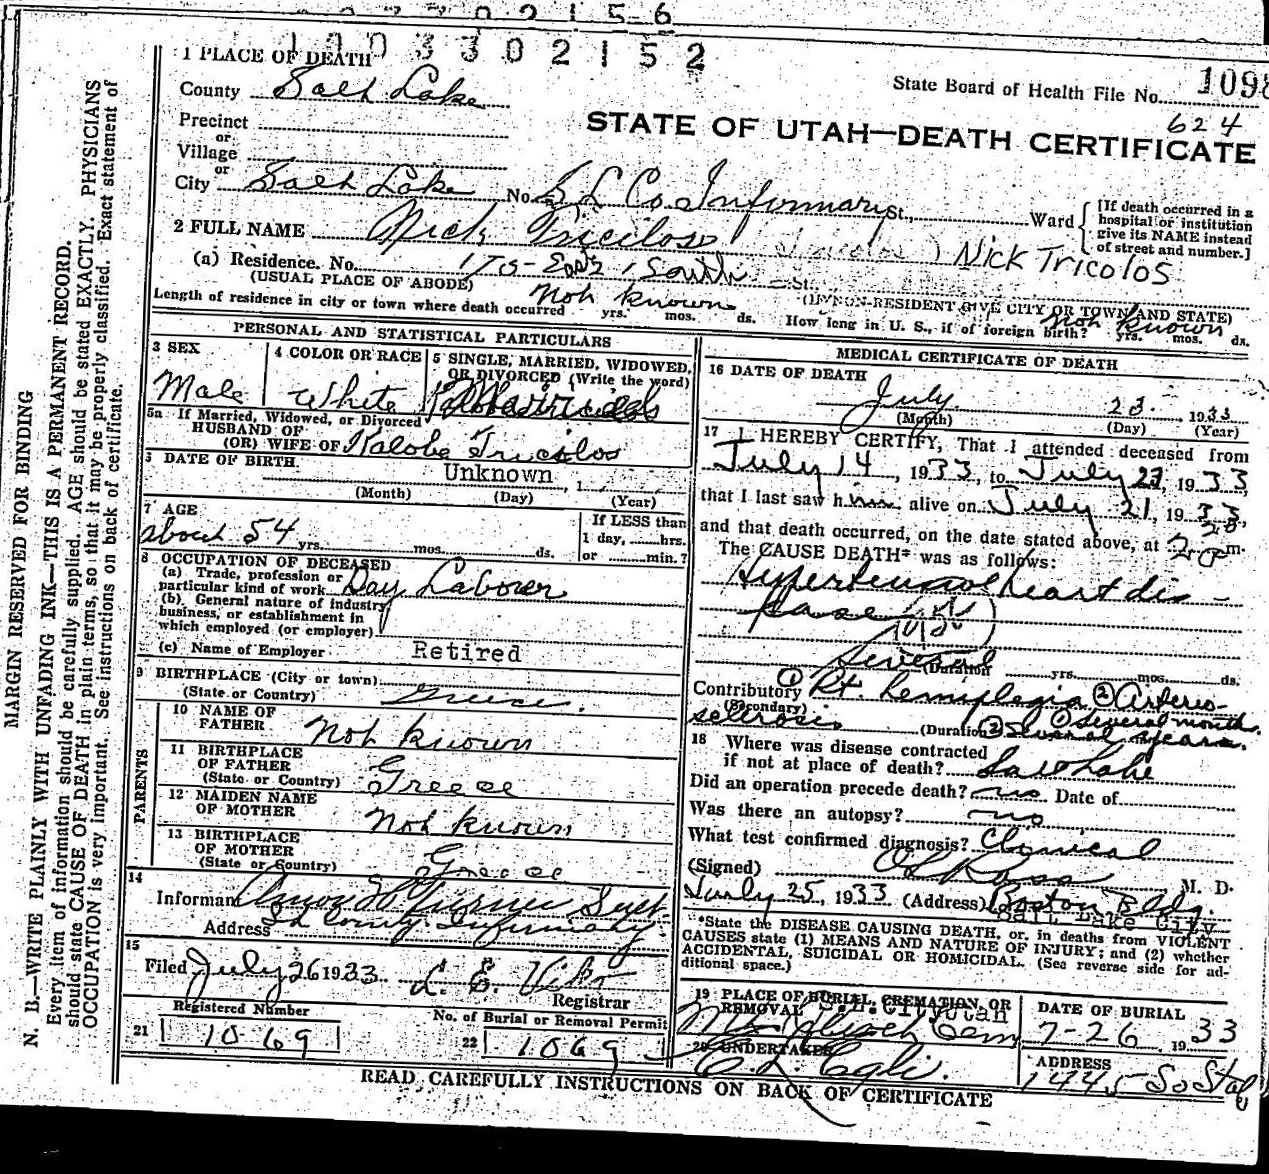 1003302152
1 PLACE OF DEATH
County Salt Lake
State Board of Health File No. 1098
624
Precinct
or
Village
or
STATE OF UTAH—DEATH CERTIFICATE
City Salt Lake No. S L Co. Infirmary St., Ward
[If death occurred in a hospital or institution give its NAME instead of street and number.]
2 FULL NAME Nick Tricilos Nick Tricolos
(a) Residence. No. 175-East 1 South St.
(USUAL PLACE OF ABODE)
(IF NON-RESIDENT GIVE CITY OR TOWN AND STATE)
Length of residence in city or town where death occurred Not known yrs. mos. ds. How long in U. S., if of foreign birth? Not known yrs. mos. ds.
PERSONAL AND STATISTICAL PARTICULARS
3 SEX
Male
4 COLOR OR RACE
White
5 SINGLE, MARRIED, WIDOWED, OR DIVORCED (Write the word)
Married
5a If Married, Widowed, or Divorced
HUSBAND OF
(OR) WIFE OF Kalobe Tricolos
DATE OF BIRTH Unknown, 1
(Month) (Day) (Year)
7 AGE
about 54 yrs. mos. ds.
If LESS than
1 day, hrs.
or min.?
8 OCCUPATION OF DECEASED
(a) Trade, profession or
particular kind of work Day Laborer
(b) General nature of industry
business, or establishment in
which employed (or employer)
(c) Name of Employer Retired
9 BIRTHPLACE (City or town)
(State or Country) Greece.
PARENTS
10 NAME OF
FATHER Not known
11 BIRTHPLACE
OF FATHER
(State or Country) Greece
12 MAIDEN NAME
OF MOTHER Not known
13 BIRTHPLACE
OF MOTHER
(State or Country) Greece
14
Informant Supt.
Address S L County Infirmary.
15
Filed July 26 1933
Registrar
Registered Number
21 1069
No. of Burial or Removal Permit
22 1069
MEDICAL CERTIFICATE OF DEATH
16 DATE OF DEATH
July 23 1933
(Month) (Day) (Year)
17 I HEREBY CERTIFY, That I attended deceased from
July 14, 1933, to July 23, 1933,
that I last saw him alive on July 21, 1933,
and that death occurred, on the date stated above, at m.
The CAUSE DEATH* was as follows:
Hypertensive heart dis-
ease
Several
(Duration yrs. mos. ds.
Contributory ① Rt. hemiplegia ② Arterio-
(Secondary)
sclerosis (Duration ① Several months. ② Several years.
18 Where was disease contracted
if not at place of death? Salt Lake
Did an operation precede death? no Date of
Was there an autopsy? no
What test confirmed diagnosis? Clinical
(Signed) M. D.
July 25, 1933 (Address) Boston Bldg.
Salt Lake City
*State the DISEASE CAUSING DEATH, or, in deaths from VIOLENT
CAUSES state (1) MEANS AND NATURE OF INJURY; and (2) whether
ACCIDENTAL, SUICIDAL OR HOMICIDAL. (See reverse side for ad-
ditional space.)
19 PLACE OF BURIAL, CREMATION, OR
REMOVAL S.L.City Utah
Cem
DATE OF BURIAL
7-26 1933
20 UNDERTAKER
ADDRESS
1445 So State
READ CAREFULLY INSTRUCTIONS ON BACK OF CERTIFICATE
MARGIN RESERVED FOR BINDING
N. B.—WRITE PLAINLY WITH UNFADING INK—THIS IS A PERMANENT RECORD.
Every item of information should be carefully supplied. AGE should be stated EXACTLY. PHYSICIANS
should state CAUSE OF DEATH in plain terms, so that it may be properly classified. Exact statement of
OCCUPATION is very important. See instructions on back of certificate.